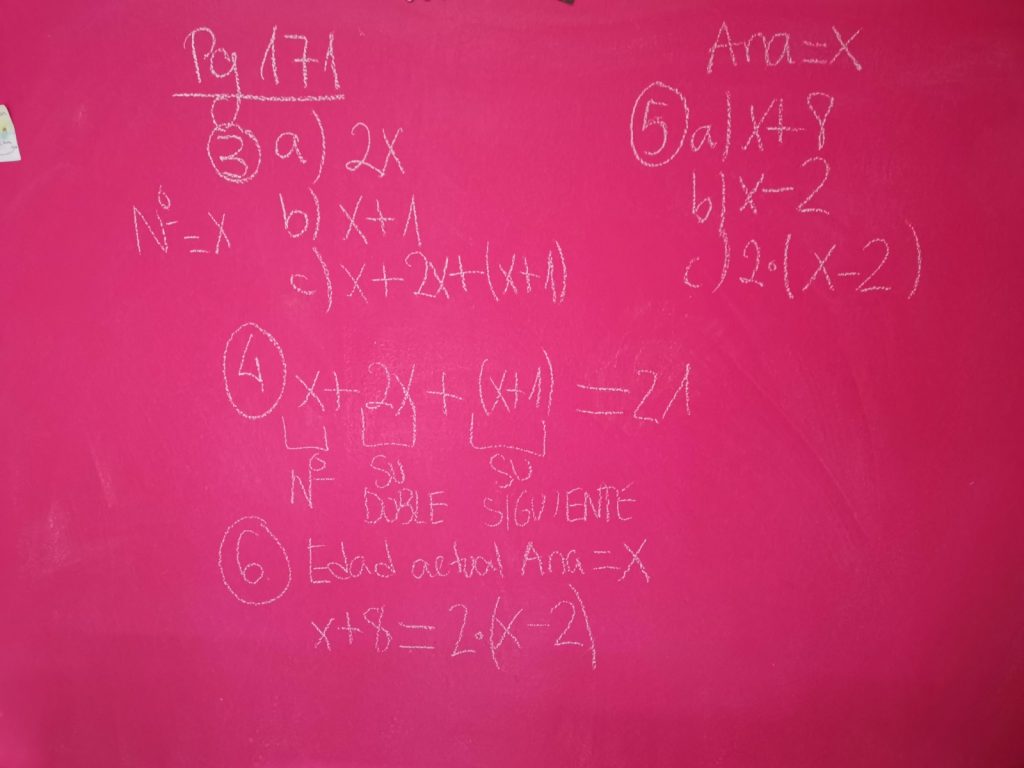 Pg 171
③ a) 2x
Nº=x b) x+1
c) x+2x+(x+1)
Ana=x
⑤ a) x+8
b) x-2
c) 2·(x-2)
④ x+2x+(x+1)=21
Nº SU DOBLE SU SIGUIENTE
⑥ Edad actual Ana=x
x+8=2·(x-2)